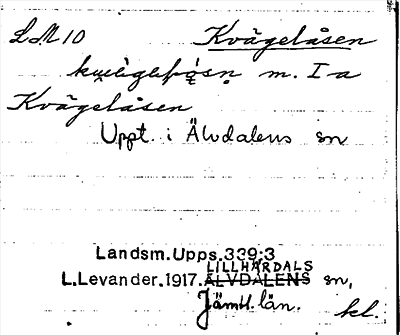 LM 10 Kvägelåsen
m. I a
Kvägelåsen
Uppt. i Älvdalens sn
Landsm.Upps.339:3
LILLHÄRDALS
L.Levander.1917. ÄLVDALENS sn,
Jämtl. län.
kl.